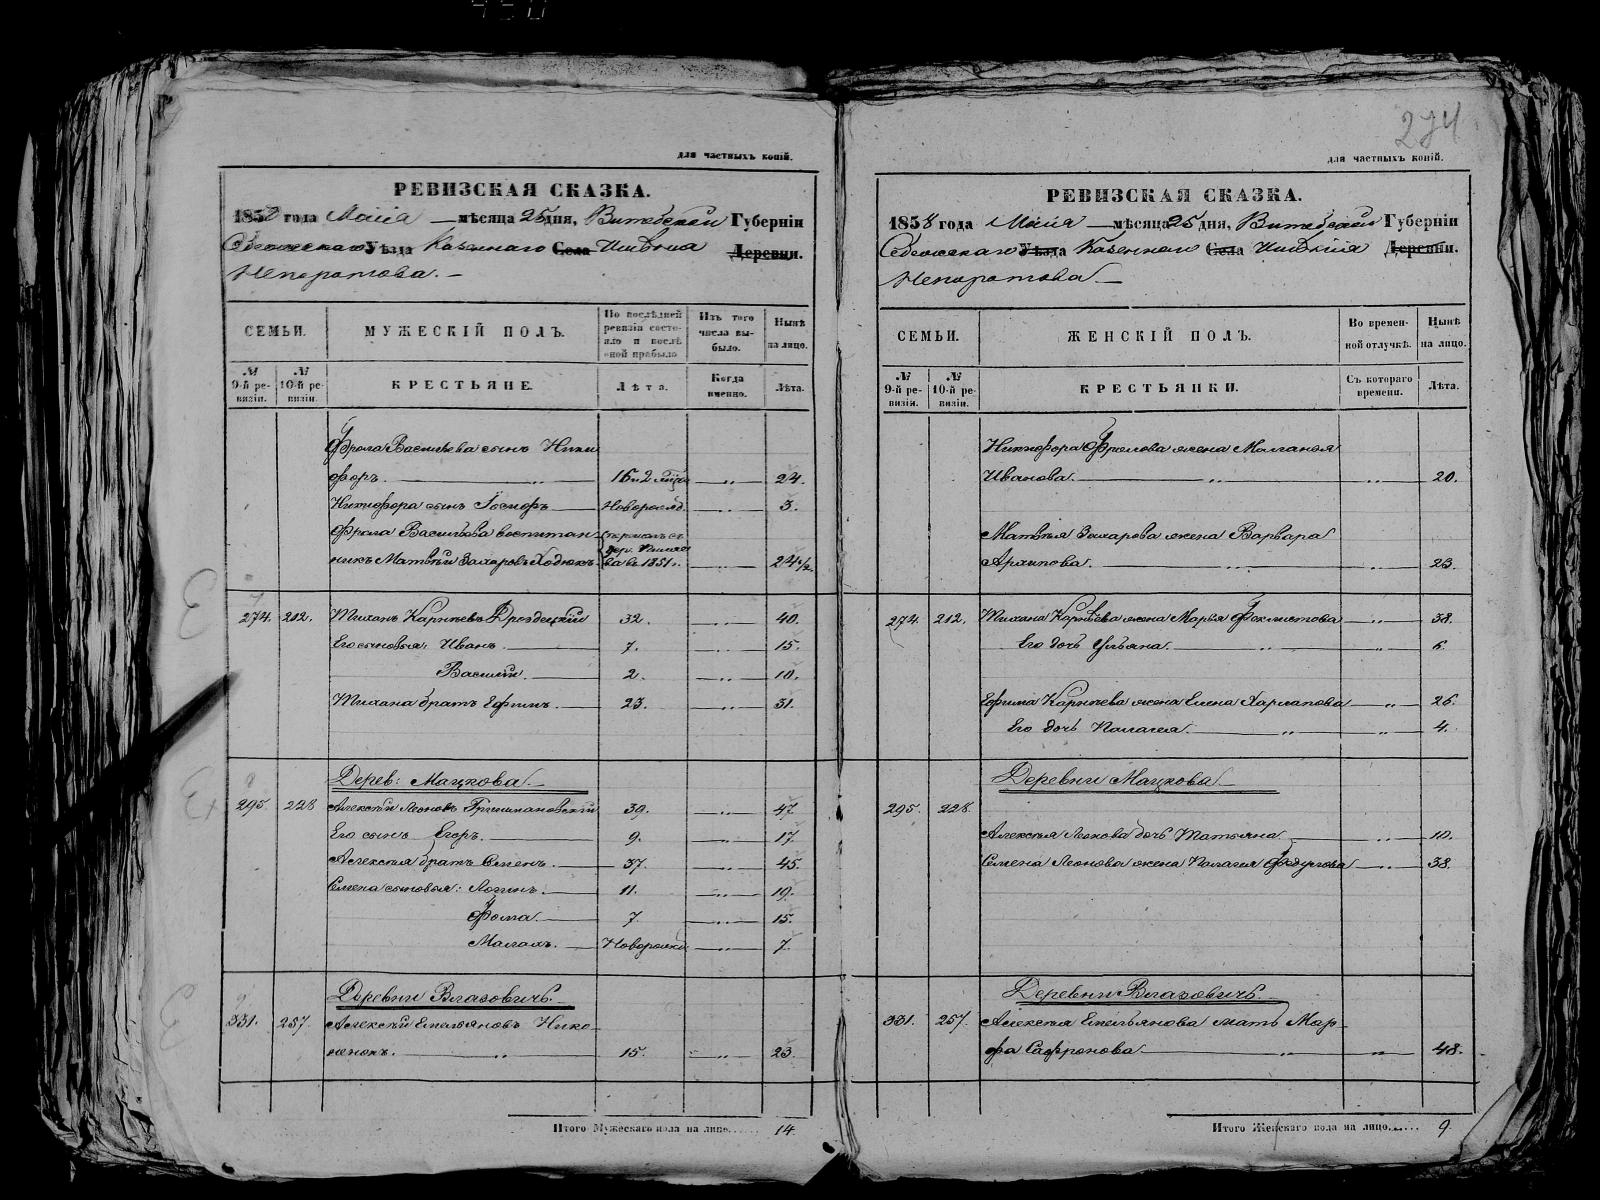 274
для частныхъ копій.
РЕВИЗСКАЯ СКАЗКА.
1858 года Маія мѣсяца 25 дня, Витебской Губерніи
Себежскаго Уѣзда Казеннаго Села Имѣнія Деревни.
Непоротова.
СЕМЬИ.
МУЖЕСКІЙ ПОЛЪ.
По послѣдней ревизіи состояло и послѣ оной прибыло
Изъ того числа выбыло.
Нынѣ на лицо.
№ 9-й ревизіи.
№ 10-й ревизіи.
КРЕСТЬЯНЕ.
Лѣта.
Когда именно.
Лѣта.
Фрола Васильева сынъ Ники
форъ. 16 и 2 24.
Никифора сынъ Іосифъ Новорожд 3.
Фрола Васильева воспитан
никъ Матвѣй Захаровъ Ходюкъ ва въ 1851 г. 24 1/2
274. 212. Тихонъ Карнѣевъ Дроздецкій 32. 40.
Его сыновья: Иванъ. 7. 15.
Василій. 2. 10.
Тихона братъ Ефимъ. 23. 31.
Дерев: Мацкова.
295. 228 Алексѣй Леоновъ 39. 47
Его сынъ Егоръ. 9. 17.
Алексѣя братъ Семенъ. 37. 45
Семена сыновья: Логинъ. 11. 19.
Фома. 7 15.
Малахъ. Новорожд. 7.
Деревни Влазовичъ.
331. 257. Алексѣй Емельяновъ Нико
ненокъ. 15. 23.
Итого Мужескаго пола на лицо...... 14.
для частныхъ копій.
РЕВИЗСКАЯ СКАЗКА.
1858 года Маія мѣсяца 25 дня, Витебской Губерніи
Себежскаго Уѣзда Казеннаго Села Имѣнія Деревни.
Непоротова.
СЕМЬИ.
ЖЕНСКІЙ ПОЛЪ.
Во временной отлучкѣ.
Нынѣ на лицо.
№ 9-й ревизіи.
№ 10-й ревизіи.
КРЕСТЬЯНКИ.
Съ котораго времени.
Лѣта.
Никифора Фролова жена Маланья
Иванова. 20.
Матвѣя Захарова жена Варвара
Архипова. 23.
274. 212. Тихона Карнѣева жена Марья Феклистова 38.
Его дочь Ульяна. 6.
Ефима Карнѣева жена Елена Харлапова 26.
Его дочь Палагея. 4.
Деревни Мацкова
295. 228. Алексѣя Леонова дочь Татьяна 10.
Семена Леонова жена Палагея 38.
Деревни Влазовичъ.
331. 257. Алексѣя Емельянова мать Мар
фа Сафронова. 48.
Итого Женскаго пола на лицо...... 9